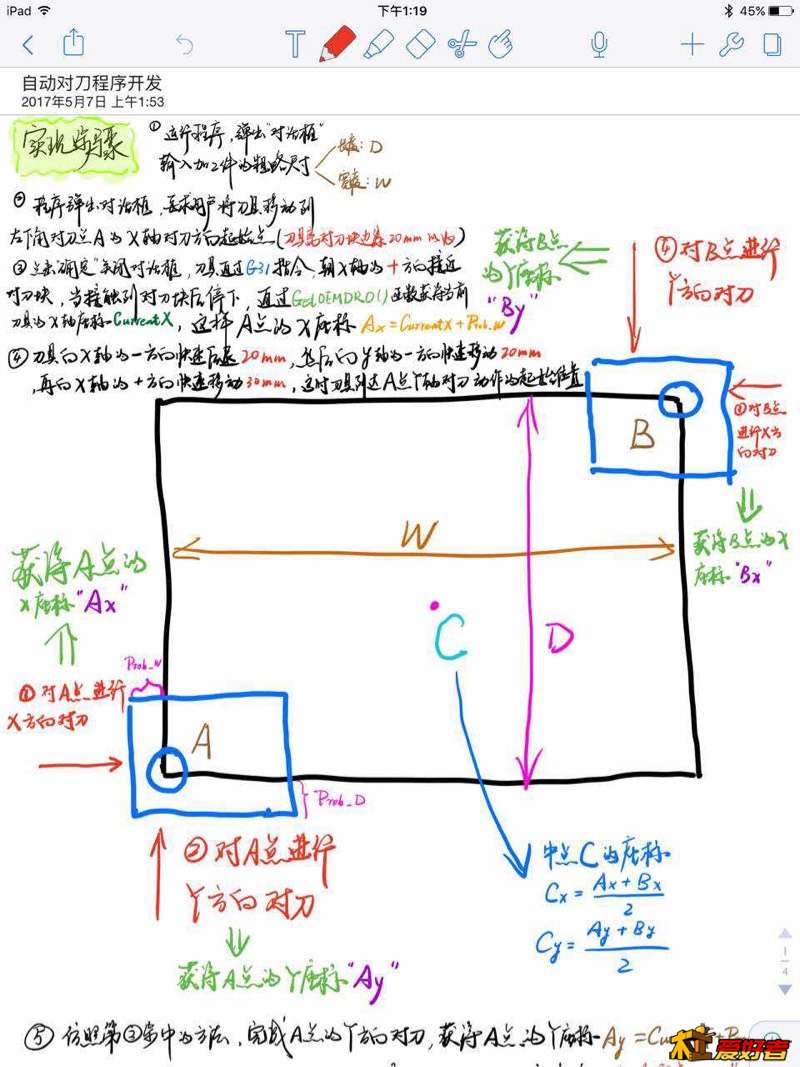 iPad
下午1:19
45%
自动对刀程序开发
2017年5月7日 上午1:53
实现步骤
① 运行程序，弹出"对话框"
输入加工件的粗略尺寸
长度: D
宽度: W
② 程序弹出对话框，要求用户将刀具移动到
左下角对刀点A的X轴对刀方向起始点(刀具离对刀块边缘20mm以内)
③ 点击"确定"关闭对话框，刀具通过G31指令，朝X轴的+方向接近
对刀块，当接触到对刀块后停下，通过GetOEMDRO()函数获得当前
刀具的X轴座标CurrentX，这样A点的X座标 Ax=CurrentX+Prob_W
④ 刀具向X轴的一方向快速后退20mm，然后向y轴的一方向快速移动20mm
，再向X轴的+方向快速移动30mm，这时刀具到达A点Y轴对刀动作的起始位置
获得B点
的Y座标
"By"
④ 对B点进行
Y方向对刀
B
③ 对B点
进行X方
向对刀
获得B点的X
座标"Bx"
W
D
C
获得A点的
X座标"Ax"
Prob_W
① 对A点进行
X方向对刀
A
Prob_D
② 对A点进行
Y方向对刀
获得A点的Y座标"Ay"
中点C的座标
Cx = Ax + Bx / 2
Cy = Ay + By / 2
1
4
⑤ 仿照第③条中的方法，完成A点的Y方向对刀，获得A点的Y座标 Ay =
爱好者